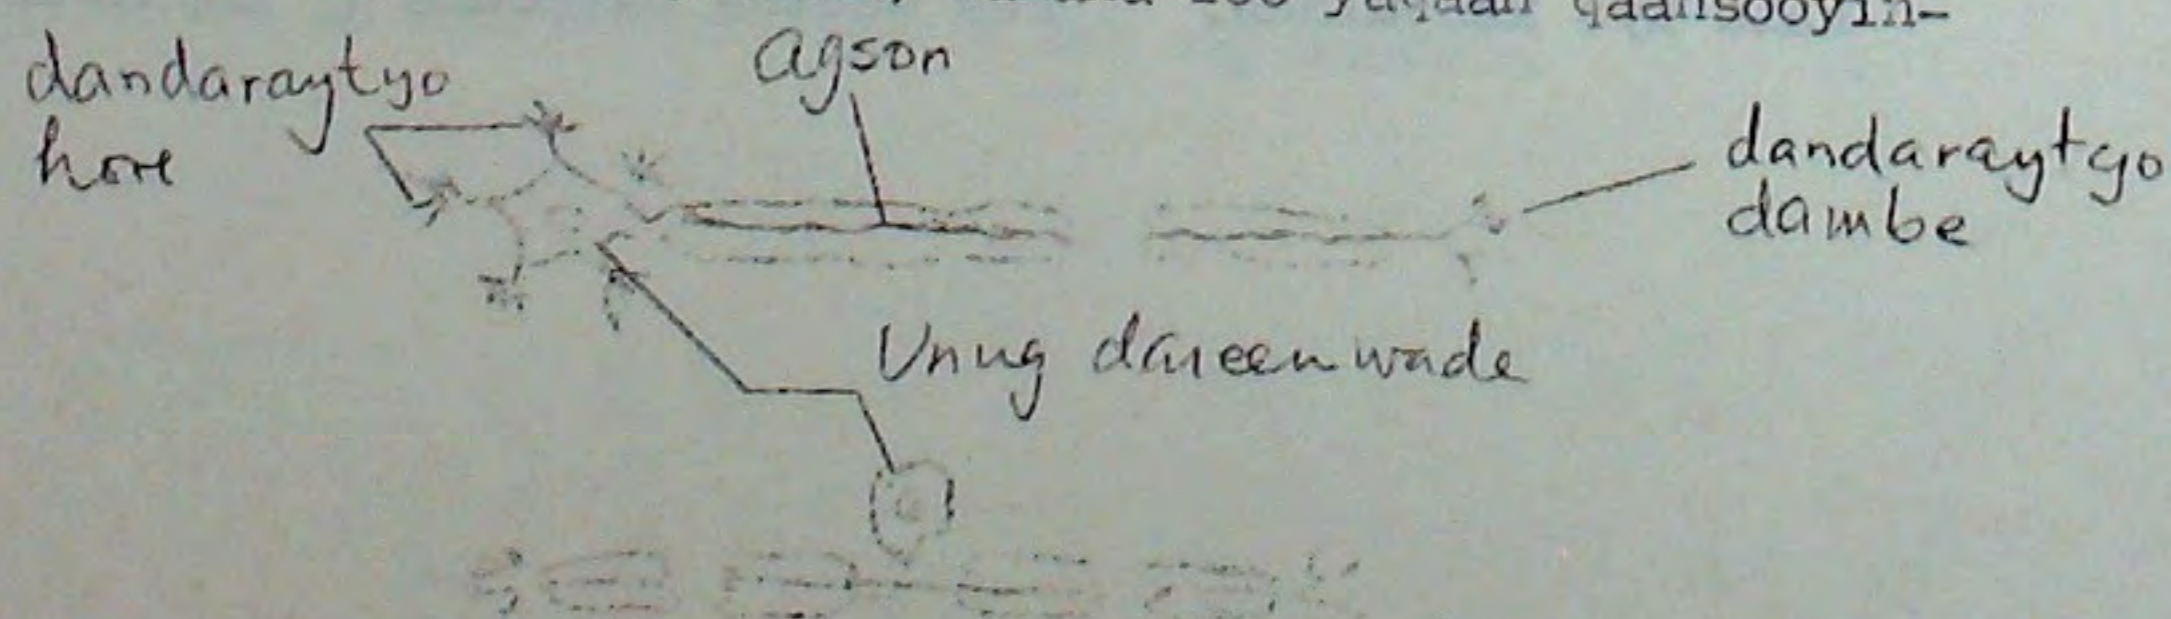 loo yaqaan qaansooyin-
dandaraytyo
hore
agson
dandaraytyo
dambe
Unug dareenwade